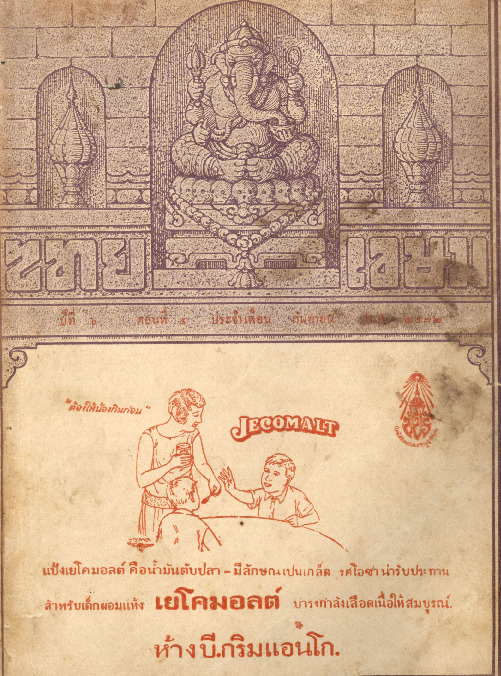 ไทย เขษม
ปีที่ ๖ ตอนที่ ๕ ประจำเดือน กันยายน ๒๔๗๒
"ต้องให้น้องกินก่อน"
JECOMALT
แป้งเยโคมอลต์ คือน้ำมันตับปลา – มีลักษณเปนเกล็ด รศโอชาน่ารับประทาน
สำหรับเด็กผอมแห้ง เยโคมอลต์ บำรุงกำลังเลือดเนื้อให้สมบูรณ์.
ห้างบี.กริมแอนโก.